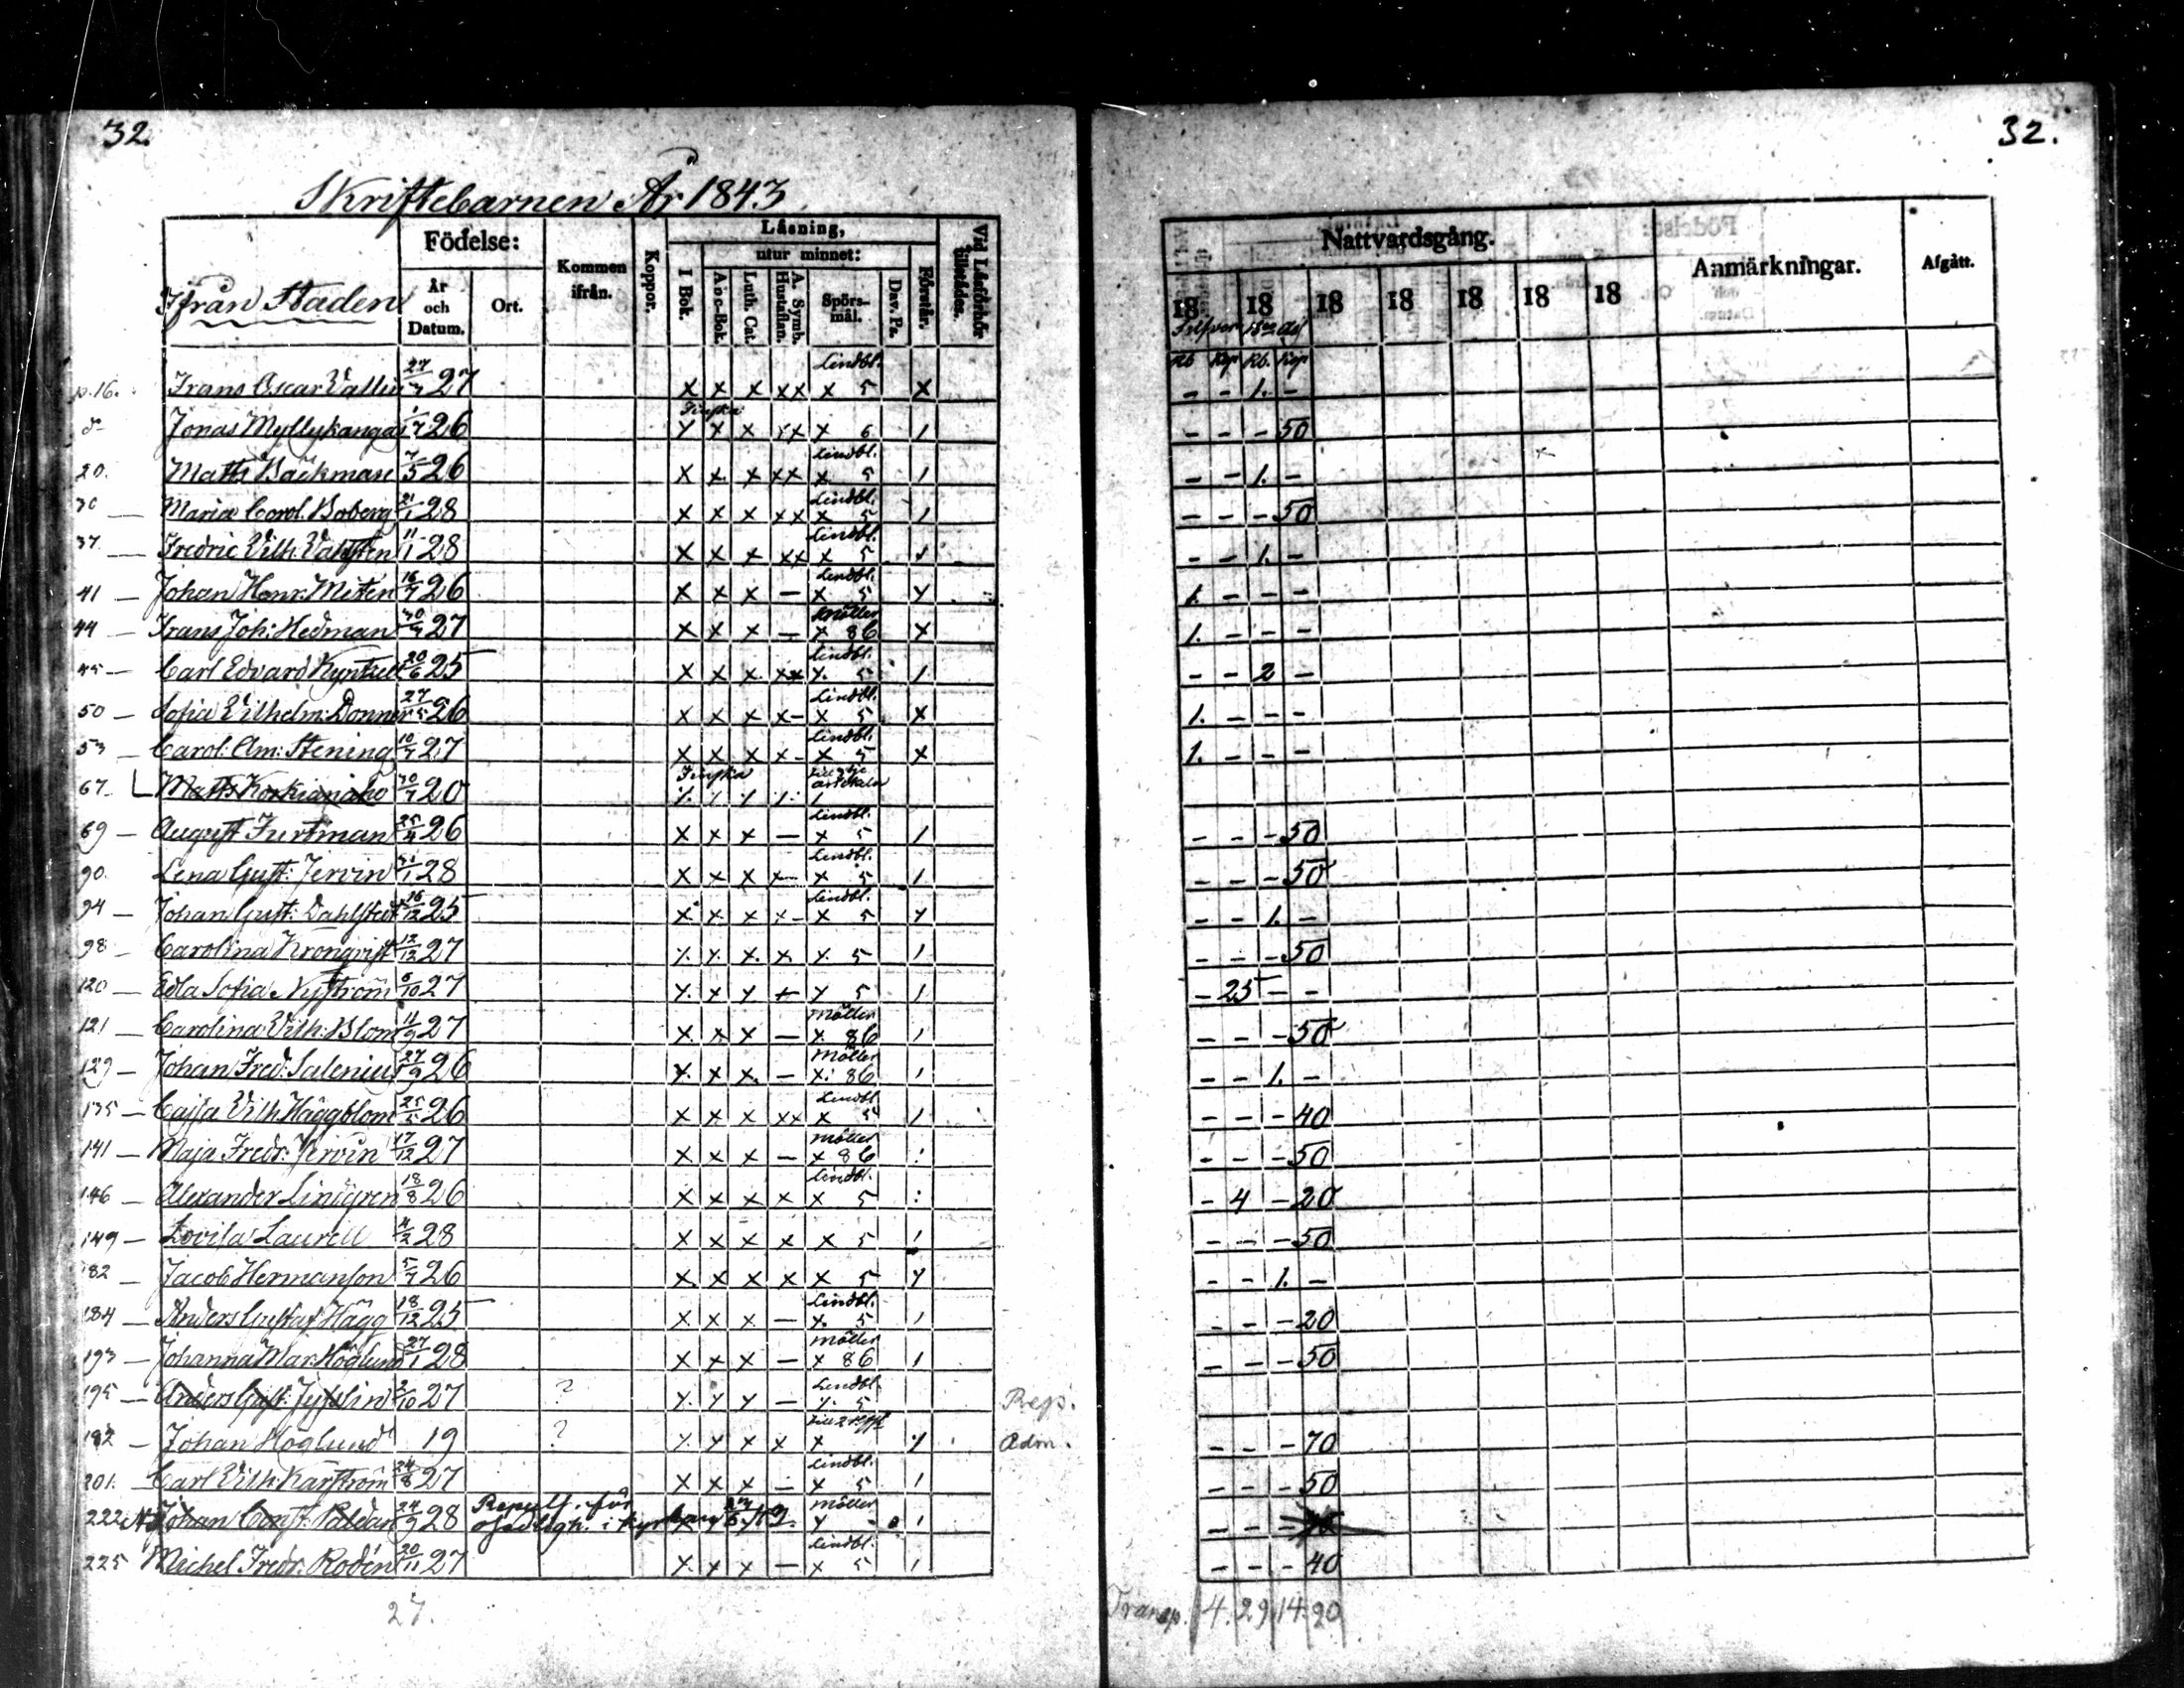 32.
Skriftebarnen År 1843
Födelse:
Läsning,
utur minnet:
Ifrån Staden
År och Datum.
Ort.
Kommen ifrån.
Koppor.
I Bok.
A b c-Bok.
Luth. Cat.
A. Symb. Hustaflan.
Spörsmål.
Dav. Ps.
Förstår.
Vid Läsförhör tillstädes.
p. 16. Frans Oscar Vallin 27 x x x xx Lindbl. x 5 x
Jonas Myllykangas 26 Finska x x x xx x 6 1
20. Matts Bäckman 7/5 26 x x x xx Lindbl. x 5 1
36 Maria Carol. Boberg 21/1 28 x x x xx Lindbl. x 5 1
37. Fredric Vilh. 11/1 28 x x x xx Lindbl. x 5
41 — Johan Henr. Mitén 16/7 26 x x x — Lindbl. x 5
44 — Frans Joh: Hedman 27 x x x — Möller x 86 x
45 — Carl Edvard Kyntzell 20/6 25 x x x xx Lindbl. x 5 1
50 — Sofia Vilhelm: Donner 26 x x x x- Lindbl. x 5 x
53 — Carol: Am: Stening 10/7 27 x x x x- Lindbl. x 5 x
67. Matts 20 Finska
69 — August Furtman 25/4 26 x x x — Lindbl. x 5 1
90. Lena Gust: Jervin 28 x x x x- Lindbl. x 5 1
94 — Johan Gust: Dahlstedt 16/12 25 x x x x- Lindbl. x 5
98 — Carolina Kronqvist 12/12 27 x x x x x 5 1
120 — Edla Sofia Nyström 6/10 27 x x x x 5 1
121 — Carolina Vilh: Blom 11/9 27 x x x — Möller x 86 1
129 — Johan Fred: Salenius 27/9 26 x x x — Möller x 86 1
135 — Cajsa Vilh Häggblom 25/5 26 x x x xx Lindbl x 5 1
141 — Maja Fredr: Jervin 17/12 27 x x x — Möller x 86
146 — Alexander Lindgren 18/8 26 x x x x Lindbl. x 5
149 — Lovisa Laurell 4/2 28 x x x x x 5 1
182 — Jacob Hermanson 5/7 26 x x x x x 5
184 — Anders Gustaf Hägg 18/12 25 x x x — Lindbl. x 5 1
193 — Johanna Mar. Höglund 27/1 28 x x x — Möller x 86 1
195 — Anders Gust: 27 ? — Lindbl. 5 Rep.
192 — Johan Höglund 19 ? x x x x x Adm.
201. Carl Vilh: Karström 24/8 27 x x x — Lindbl. x 5 1
222 Johan Const. Paldan 24/9 28 Repulf. för i kyrkan Möller
225 Michel Fredr. Rodén 20/11 27 x x x — Lindbl. x 5 1
27.
32.
Nattvardsgång.
Anmärkningar.
Afgått.
18 18 18 18 18 18 18
Rb Kop Rb. Kop
- - 1. -
- - - 50
- - 1. -
- - - 50
- - 1. -
1. - - -
1. - - -
- - 2 -
1. - - -
1. - - -
- - - 50
- - - 50
- - 1. -
- - - 50
- 25 - -
- - - 50
- - 1. -
- - - 40
- - - 50
- 4 - 20
- - - 50
- - 1. -
- - - 20
- - - 50
- - - 70
- - - 50
- - -
- - - 40
Transp. 4. 29 14. 90